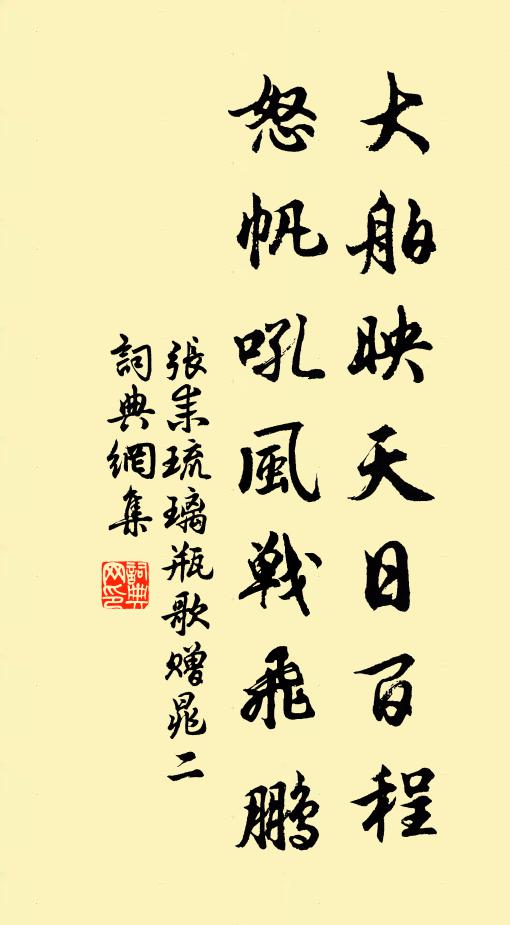 大舶映天日百程
怒帆吼风戦飛鵬
張耒琉璃瓶歌赠晁二
詞典網集
詞典网印